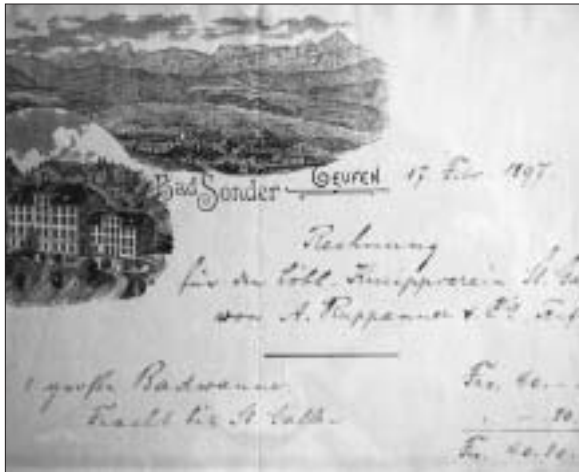 Bad Sonder TEUFEN 17 Febr. 1897.
Rechnung
für den löbl. Kneippverein St. Ga
von A. Ruppanner &
1 große Badwanne Frs. 40.–
Fracht bis St. Gallen – .80.
Fr. 40.80.